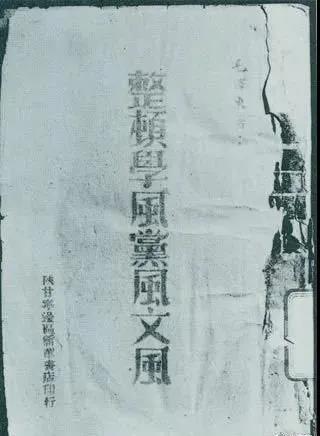 毛泽东著
整頓學風黨風文風
陝甘寧邊區新華書店印行